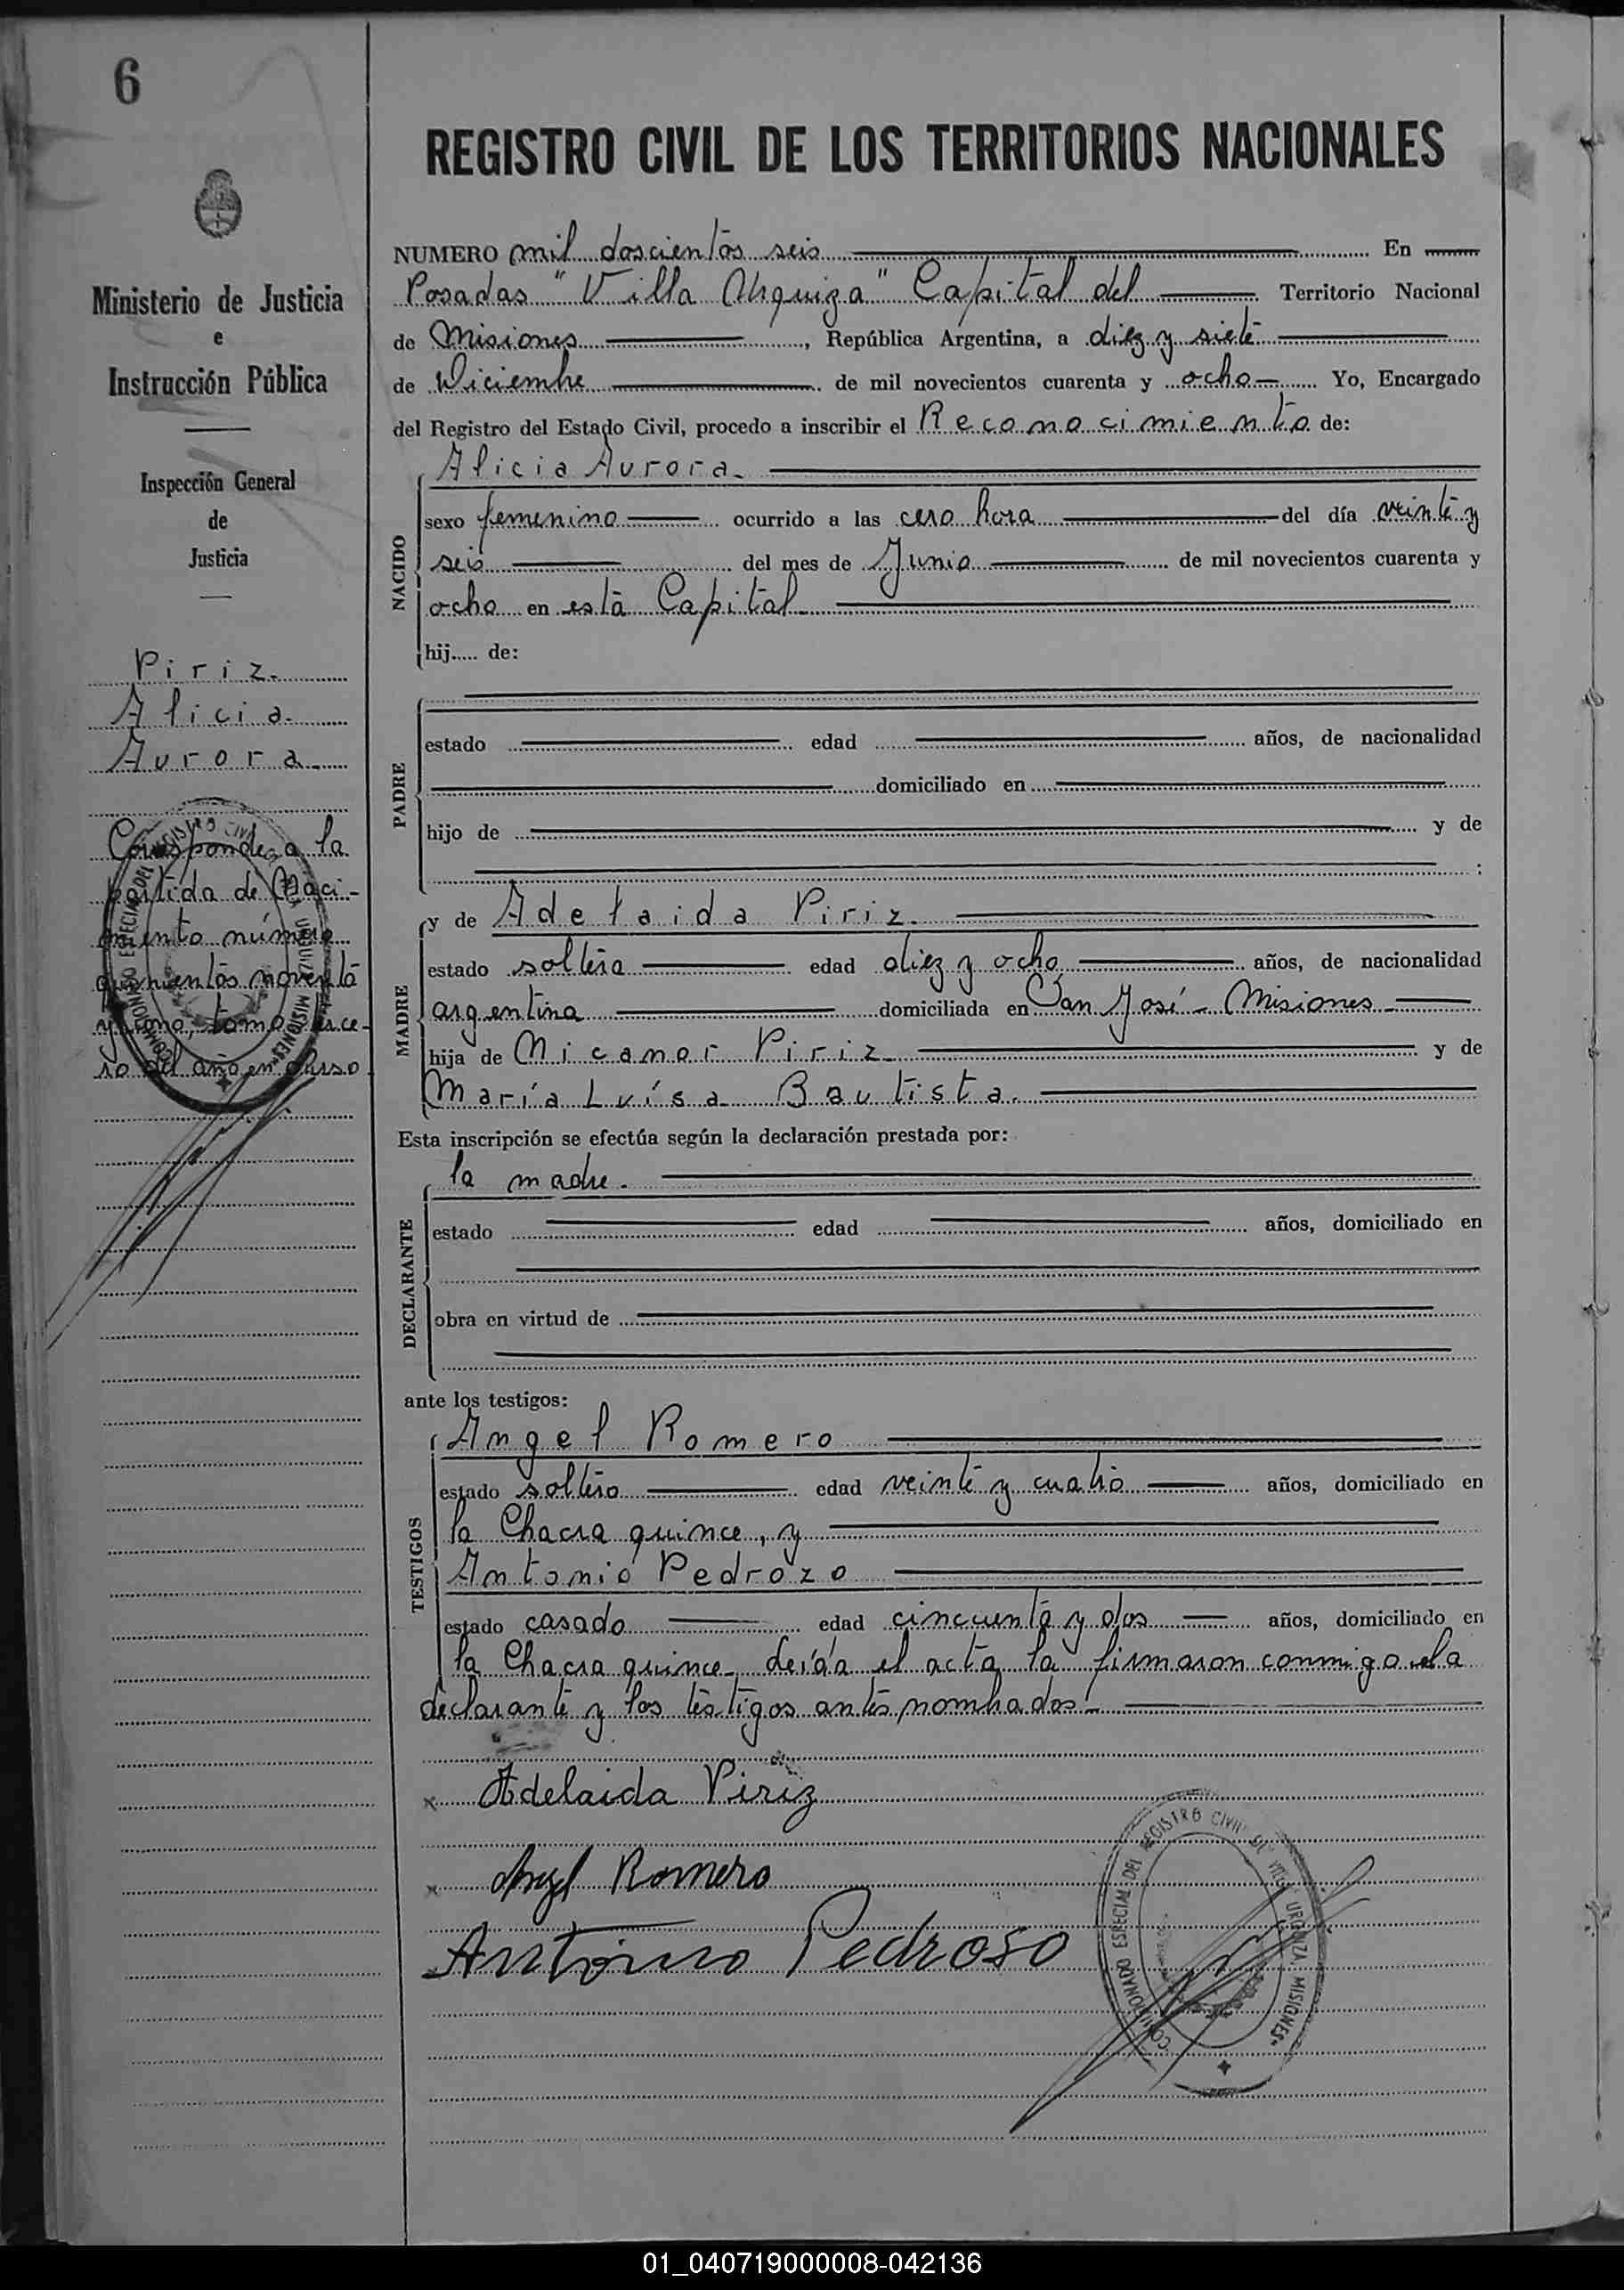 6
Ministerio de Justicia
e
Instrucción Pública
Inspección General
de
Justicia
Piriz.
Alicia
Aurora.
Corresponde a la
partida de Naci-
miento número
quinientos noventa
y uno, tomo terce-
ro del año en curso
REGISTRO CIVIL DE LOS TERRITORIOS NACIONALES
NUMERO mil doscientos seis En
Posadas "Villa Urquiza" Capital del Territorio Nacional
de Misiones, República Argentina, a diez y siete
de Diciembre de mil novecientos cuarenta y ocho Yo, Encargado
del Registro del Estado Civil, procedo a inscribir el Reconocimiento de:
NACIDO
Alicia Aurora.
sexo femenino ocurrido a las cero hora del día veinte y
seis del mes de Junio de mil novecientos cuarenta y
ocho en esta Capital
hij..... de:
PADRE
estado edad años, de nacionalidad
domiciliado en
hijo de y de
:
MADRE
y de Adelaida Piriz.
estado soltera edad diez y ocho años, de nacionalidad
argentina domiciliada en San José - Misiones
hija de Nicanor Piriz y de
María Luísa Bautista.
Esta inscripción se efectúa según la declaración prestada por:
DECLARANTE
la madre.
estado edad años, domiciliado en
obra en virtud de
ante los testigos:
TESTIGOS
Angel Romero
estado soltero edad veinte y cuatro años, domiciliado en
la Chacra quince, y
Antonio Pedrozo
estado casado edad cincuenta y dos años, domiciliado en
la Chacra quince. Leída el acta la firmaron conmigo la
declarante y los testigos antes nombrados.
x Adelaida Piriz
x Angel Romero
x Antonio Pedroso
COMISIONADO ESPECIAL DEL REGISTRO CIVIL DE VILLA URQUIZA, MISIONES
01_040719000008-042136